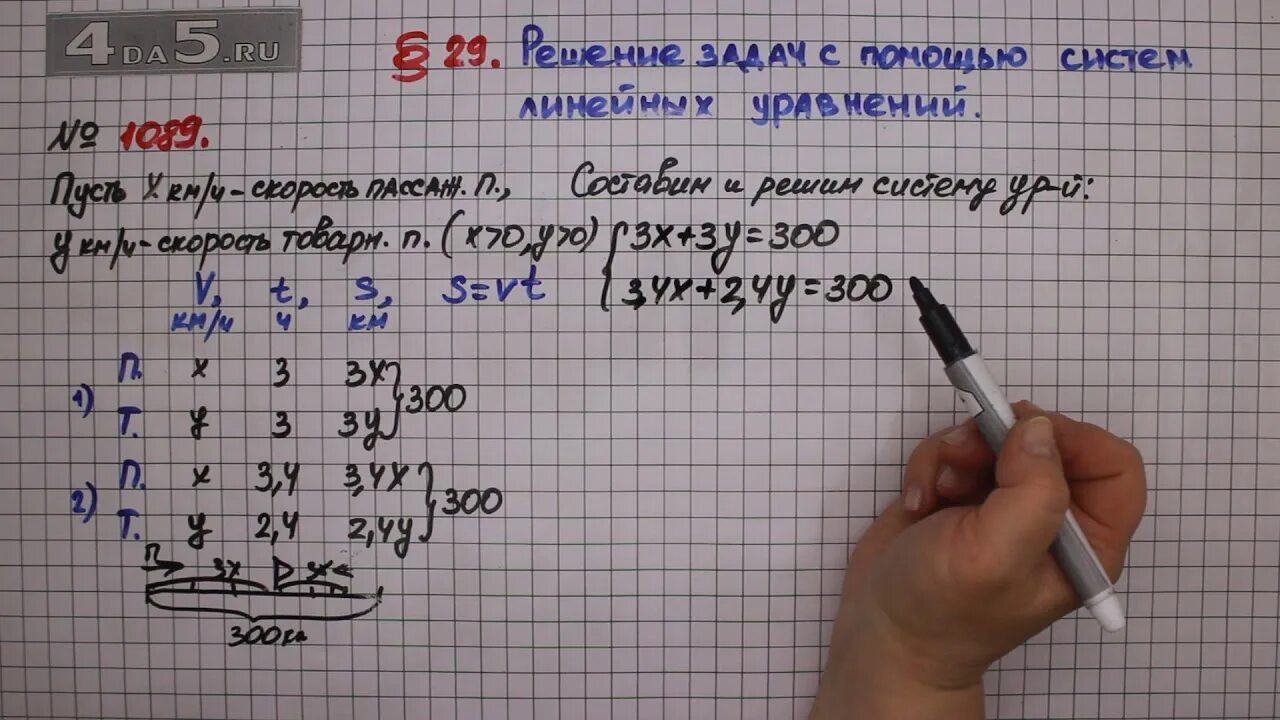 4DA5.RU
§ 29. Решение задач с помощью систем
линейных уравнений.
№ 1089.
Пусть x км/ч - скорость пассаж. п.,
y км/ч - скорость товарн. п. (x>0, y>0)
Составим и решим систему ур-й:
3x+3y=300
3,4x+2,4y=300
V, t, S, S=vt
км/ч ч км
1) П. x 3 3x
Т. y 3 3y
300
2) П. x 3,4 3,4x
Т. y 2,4 2,4y
300
П 3x
300км